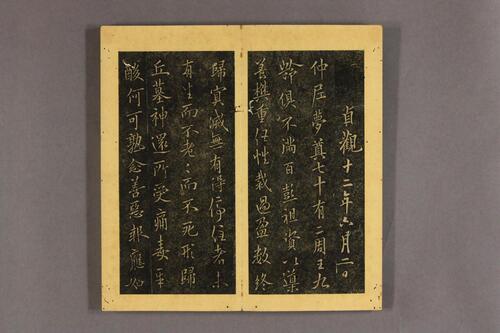 貞觀十二年六月二日
仲尼夢奠七十有二周王九
齡俱不滿百彭祖資以導
養樊重任性裁過盈數終
歸冥滅無有得停住者未
有生而不老〻而不死形歸
丘墓神還所受痛毒辛
酸何可熟念善惡報應如